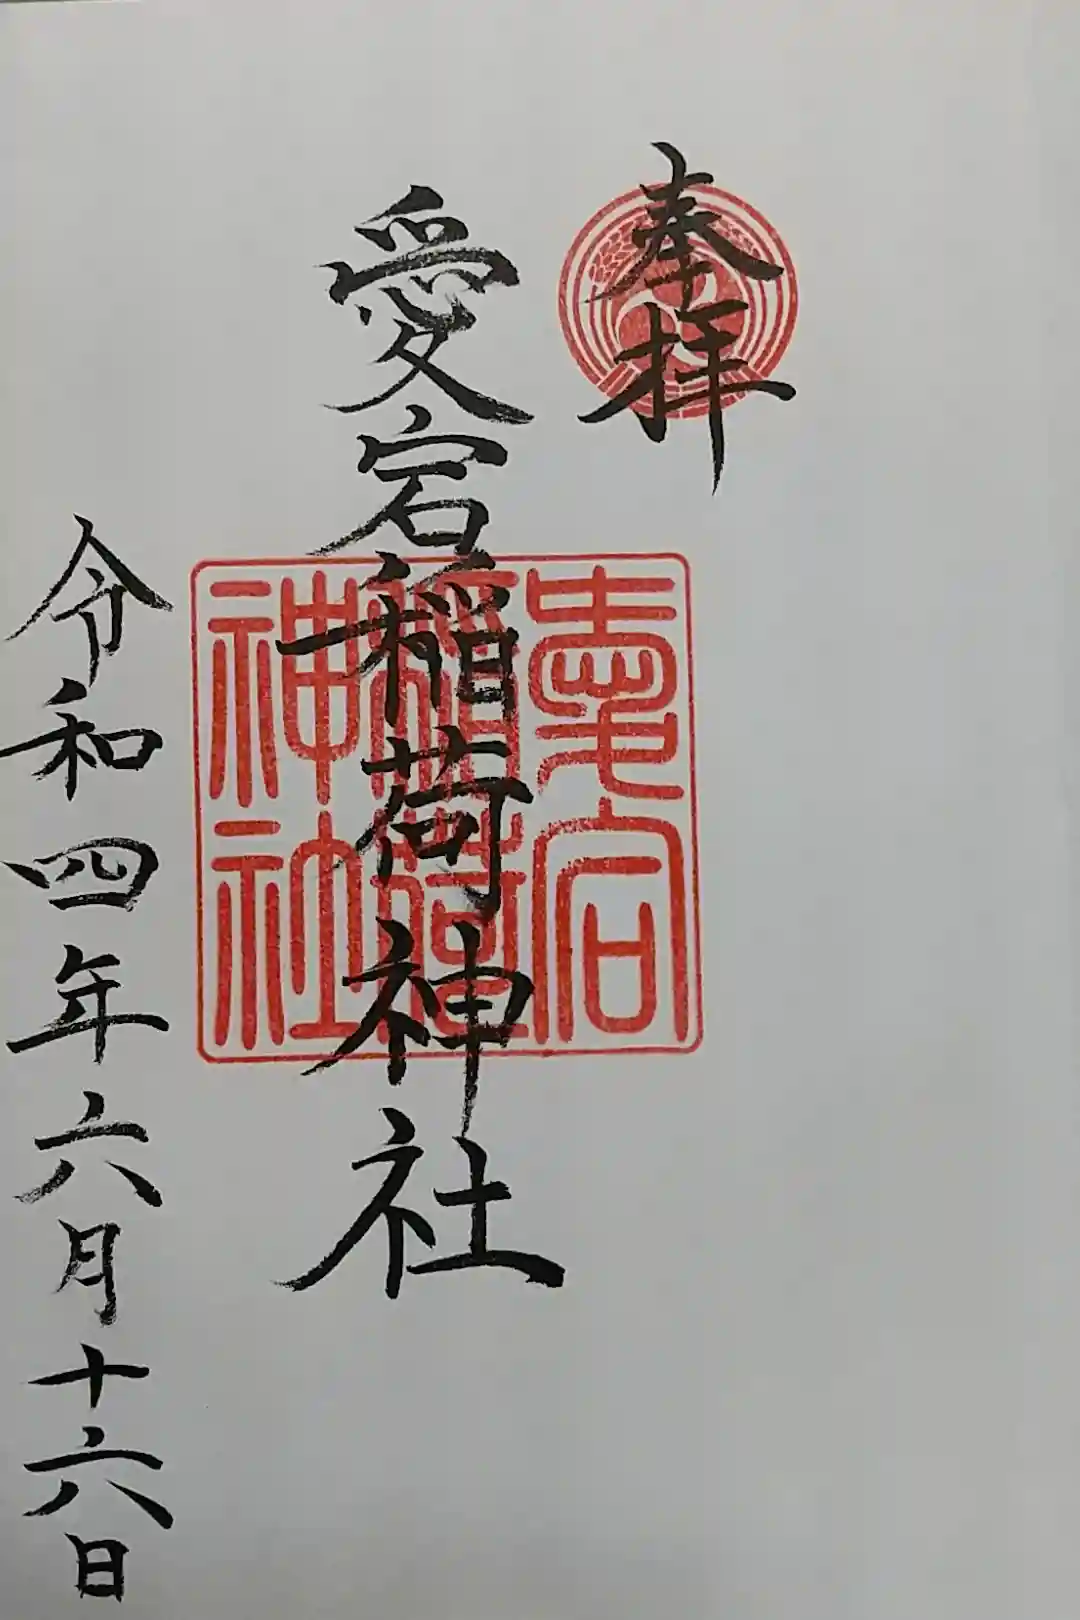 奉拝
愛宕稲荷神社
令和四年六月十六日
愛宕
稲荷
神社